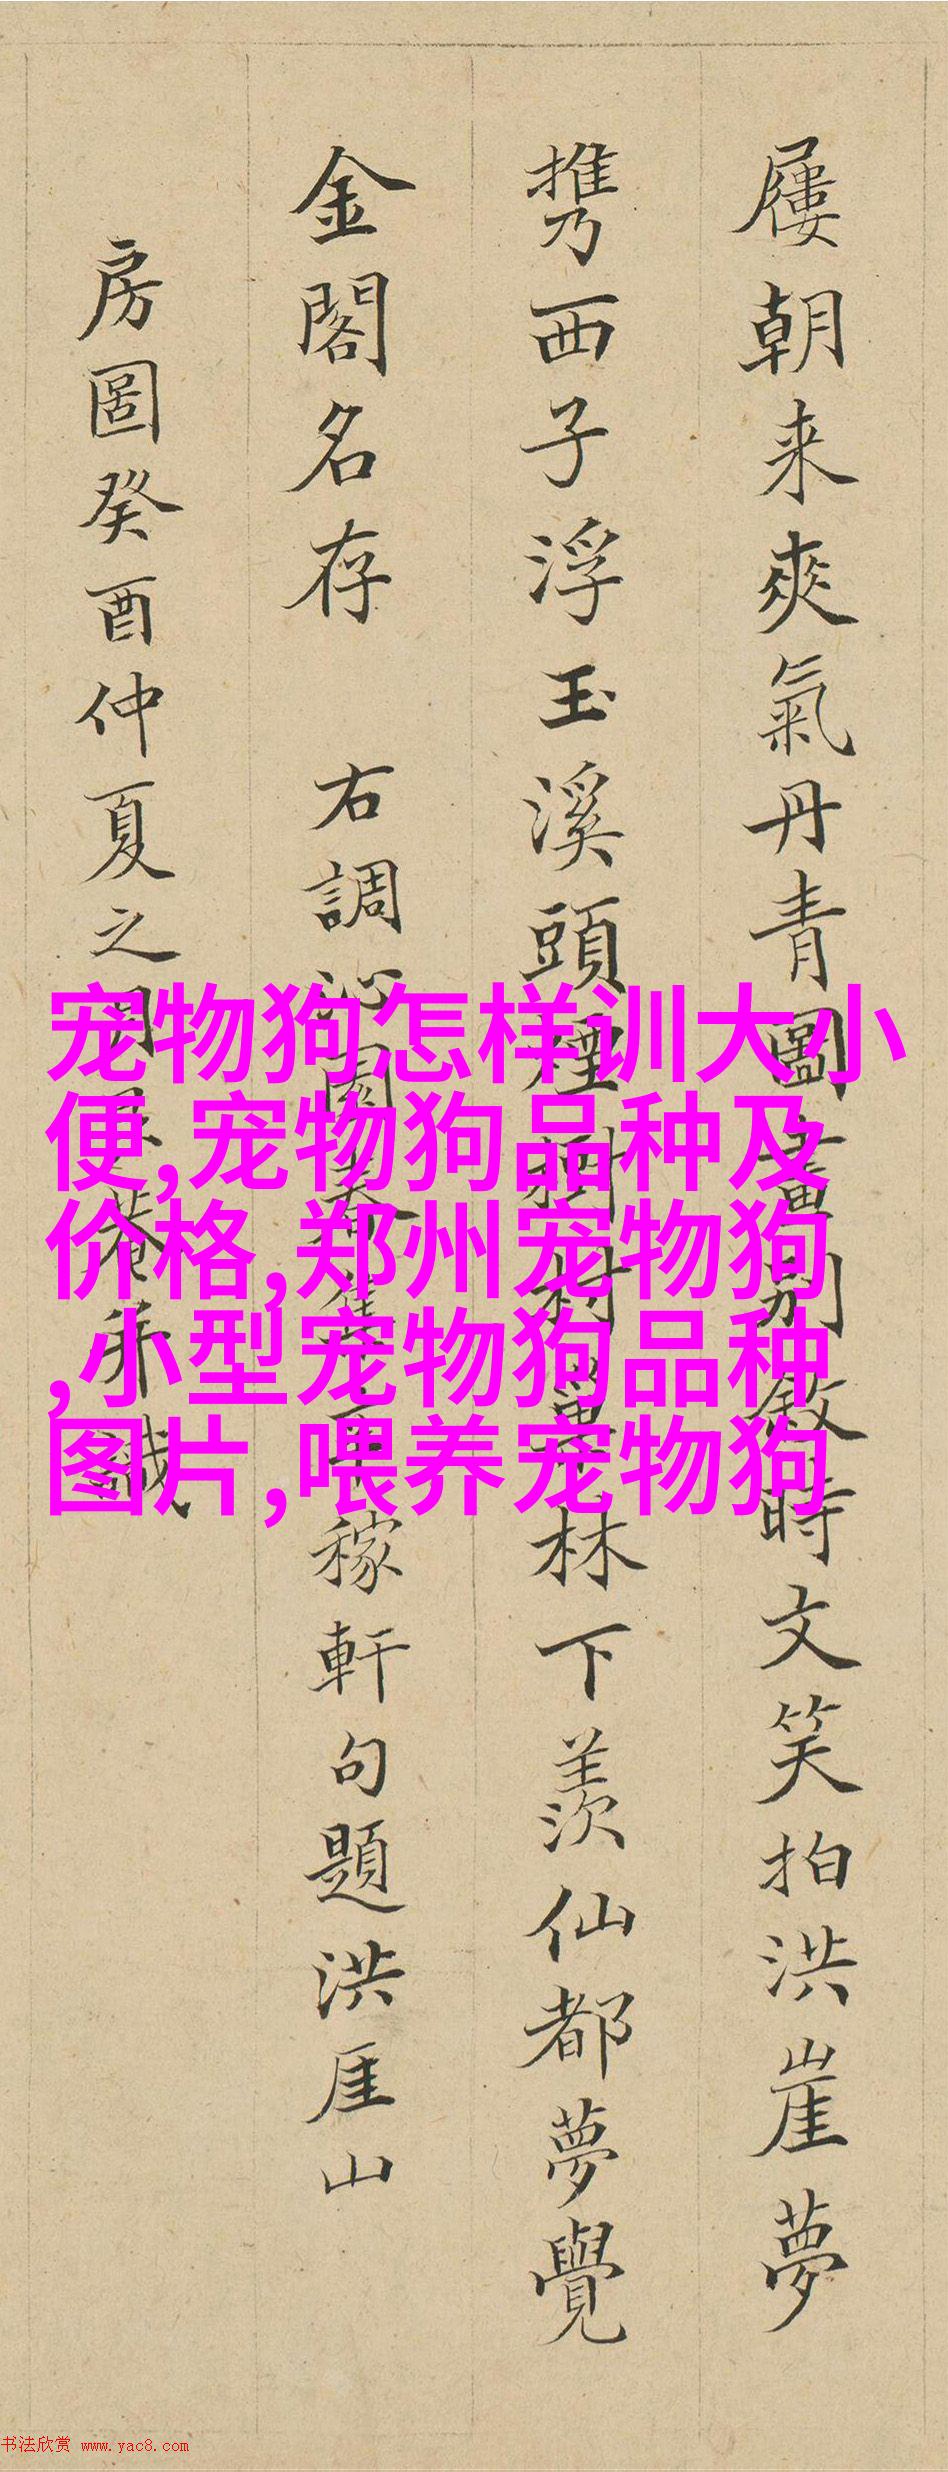 屨朝来爽氣丹青圖畫別敘時文笑拍洪崖夢
携西子浮玉溪頭煙樹村林下羨仙都夢覺
金閣名存 右調沁園春集稼軒句題洪厓山
房圖癸酉仲夏之月菴弟識
宠物狗怎样训大小
便,宠物狗品种及
价格,郑州宠物狗
,小型宠物狗品种
图片,喂养宠物狗
书法欣赏 www.yac8.com